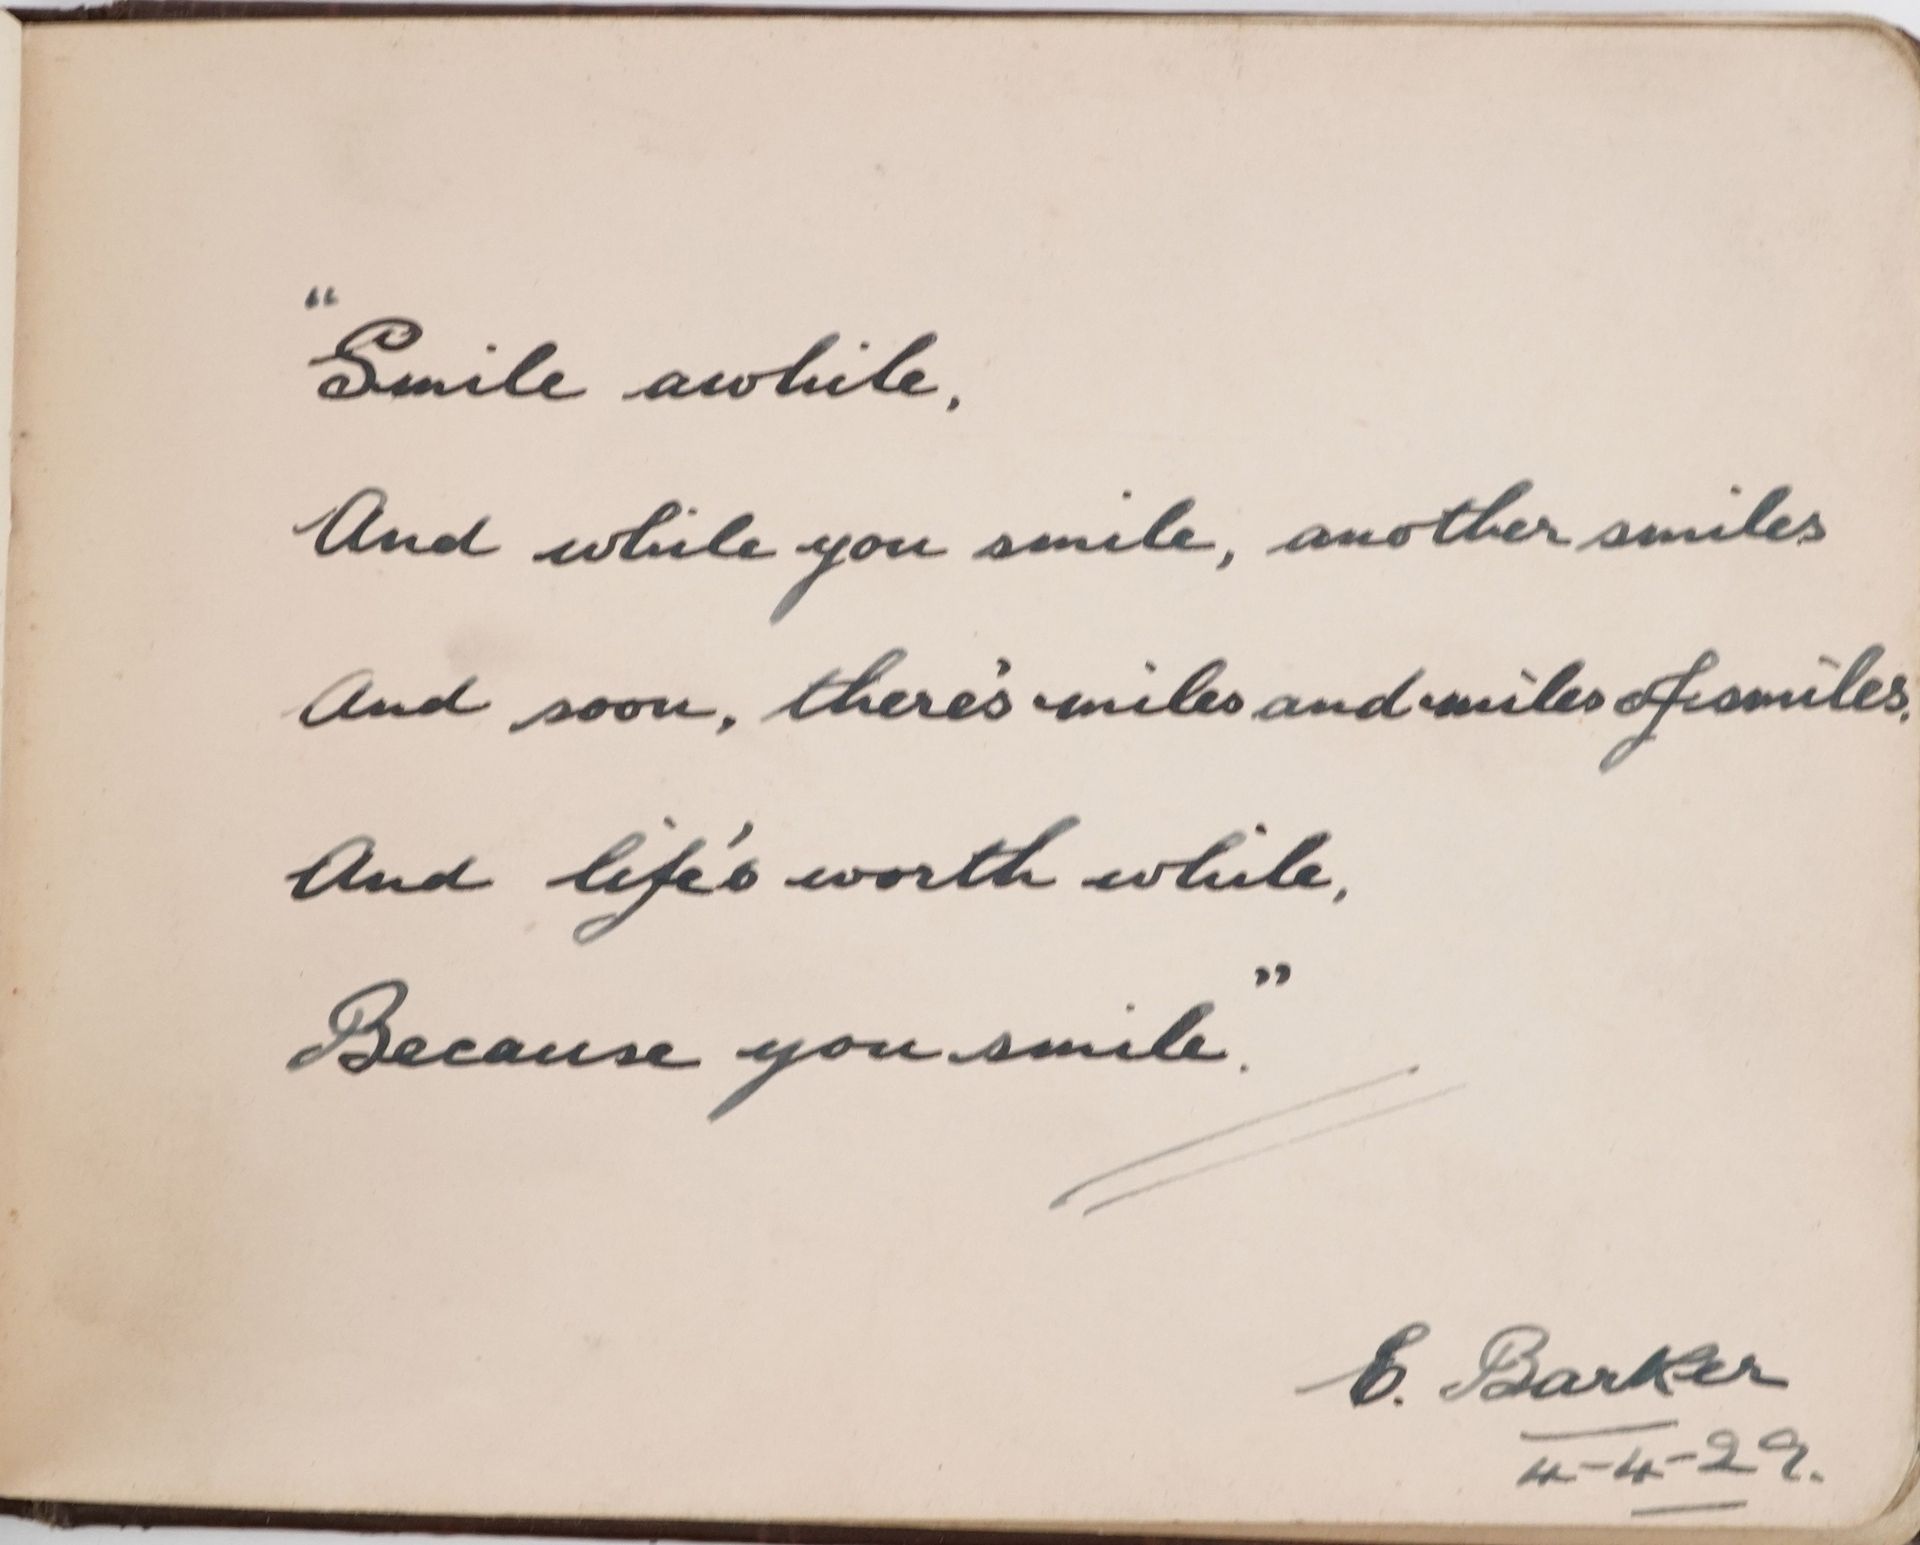 "Smile awhile,
And while you smile, another smiles
And soon, there's miles and miles of smiles.
And life's worth while,
Because you smile."
E. Barker
4-4-29.